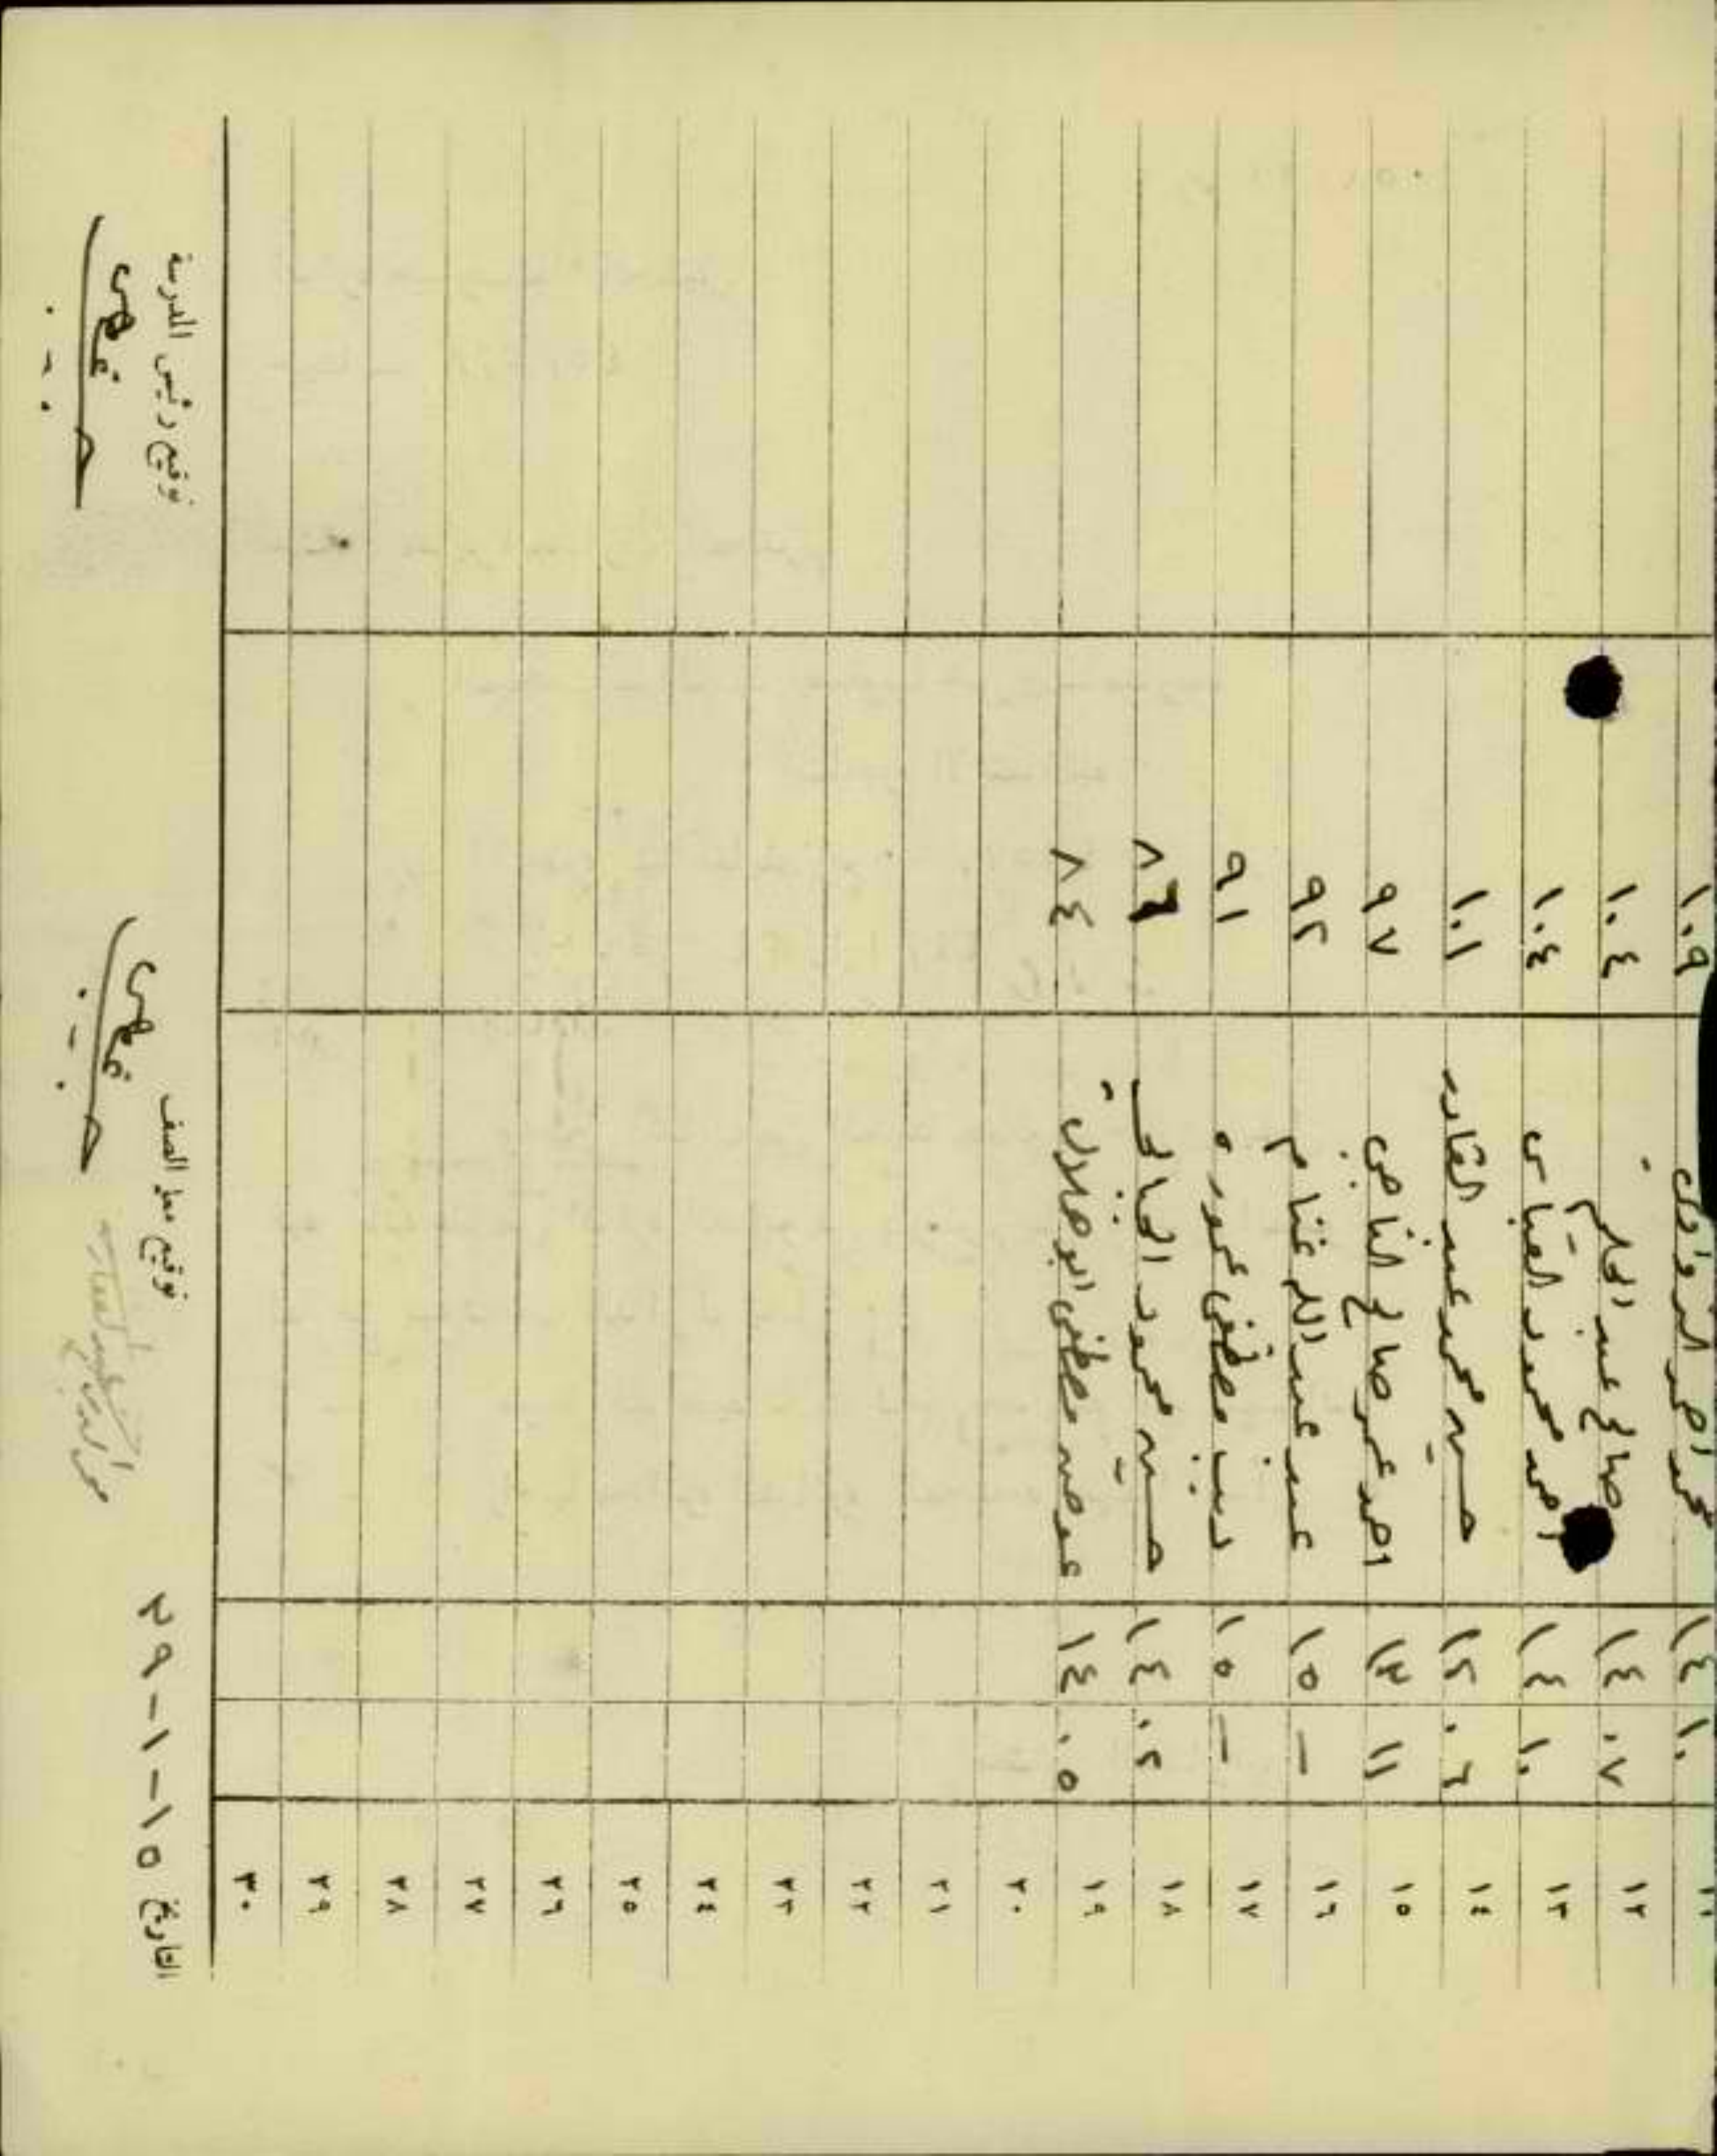 ١١ ١٠ ١٤ محمد احمد ١٠٩
١٢ ٠٧ ١٤ صالح عبد الحليم ١٠٤
١٣ ١٠ ١٤ احمد محمود العباسي ١٠٤
١٤ ٠٦ ١٢ حسين محمد عبد القادر ١٠١
١٥ ١١ ١٣ احمد عمر صالح الناجي ٩٧
١٦ — ١٥ عبد عبد الله غنام ٩٢
١٧ — ١٥ ديب مصطفى عموره ٩١
١٨ ٠٢ ١٤ حسين محمود ٨٦
١٩ ٠٥ ١٤ عوض مصطفى ابو هلال ٨٤
٢٠
٢١
٢٢
٢٣
٢٤
٢٥
٢٦
٢٧
٢٨
٢٩
٣٠
التاريخ ١٥-١-٢٩ توقيع معلم الصف توقيع رئيس المدرسة